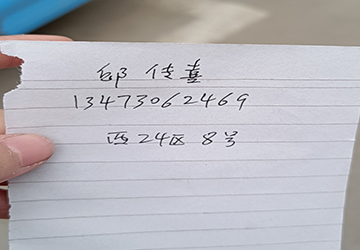 邰传喜
13473062469
西24区8号